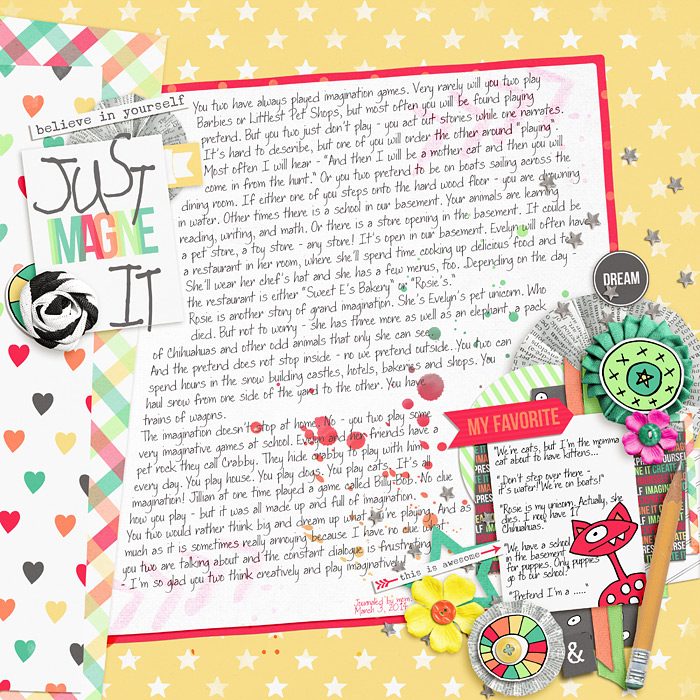 believe in yourself
JUST
IMAGINE
IT
You two have always played imagination games. Very rarely will you two play
Barbies or Littlest Pet Shops, but most often you will be found playing
pretend. But you two just don't play - you act out stories while one narrates.
It's hard to describe, but one of you will order the other around "playing".
Most often I will hear - "And then I will be a mother cat and then you will
come in from the hunt." Or you two pretend to be on boats sailing across the
dining room. If either one of you steps onto the hard wood floor - you are drowning
in water. Other times there is a school in our basement. Your animals are learning
reading, writing, and math. Or there is a store opening in the basement. It could be
a pet store, a toy store - any store! It's open in our basement. Evelyn will often have
a restaurant in her room, where she'll spend time cooking up delicious food and to
She'll wear her chef's hat and she has a few menus, too. Depending on the day -
the restaurant is either "Sweet E's Bakery" or "Rosie's."
Rosie is another story of grand imagination. She's Evelyn's pet unicorn. Who
died. But not to worry - she has three more as well as an elephant, a pack
of Chihuahuas and other odd animals that only she can see.
And the pretend does not stop inside - no we pretend outside. You two can
spend hours in the snow building castles, hotels, bakeries and shops. You
haul snow from one side of the yard to the other. You have
trains of wagons.
The imagination doesn't stop at home. No - you two play some
very imaginative games at school. Evelyn and her friends have a
pet rock they call Crabby. They hide crabby to play with him
every day. You play house. You play dogs. You play cats. It's all
imagination! Jillian at one time played a game called Billy-Bob. No clue
how you play - but it was all made up and full of imagination.
You two would rather think big and dream up what you're playing. And as
much as it is sometimes really annoying because I have no clue what
you two are talking about and the constant dialogue is frustrating
- I'm so glad you two think creatively and play imaginatively.
Journaled by mom,
March 3, 2014
DREAM
MY FAVORITE
"We're cats, but I'm the momma
cat about to have kittens...
"Don't step over there -
it's water! We're on boats!"
Rosie is my unicorn. Actually, she
dies. I now have 17
Chihuahuas.
"We have a school
in the basement
for puppies. Only puppies
go to our school."
"Pretend I'm a .....
this is awesome
&